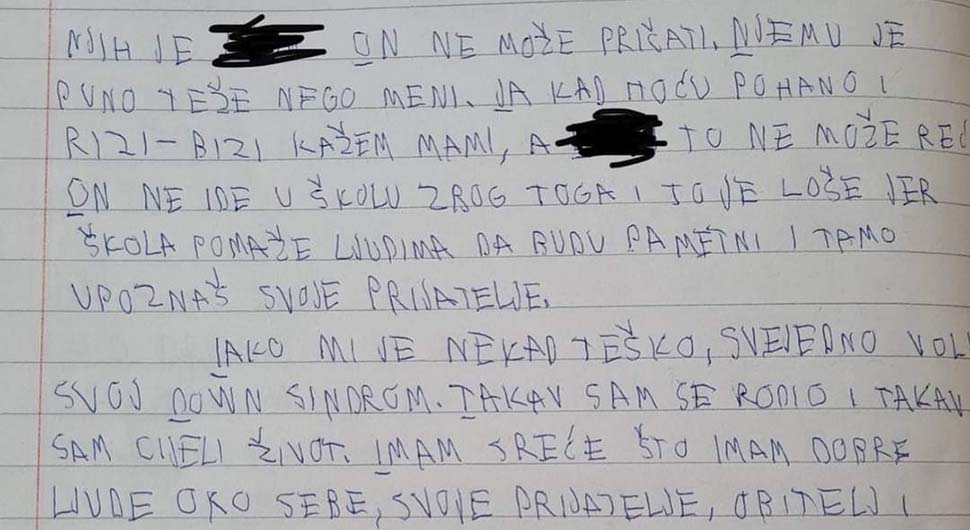 NJIH JE ON NE MOŽE PRIČATI. NJEMU JE
PUNO TEŽE NEGO MENI. JA KAD HOĆU POHANO I
RIZI-BIZI KAŽEM MAMI, A TO NE MOŽE REĆ
ON NE IDE U ŠKOLU ZBOG TOGA I TO JE LOŠE JER
ŠKOLA POMAŽE LJUDIMA DA BUDU PAMETNI I TAMO
UPOZNAŠ SVOJE PRIJATELJE.
IAKO MI JE NEKAD TEŠKO, SVEJEDNO VOL
SVOJ DOWN SINDROM. TAKAV SAM SE RODIO I TAKAV
SAM CIJELI ŽIVOT. IMAM SREĆE ŠTO IMAM DOBRE
LJUDE OKO SEBE, SVOJE PRIJATELJE, OBITELJ I